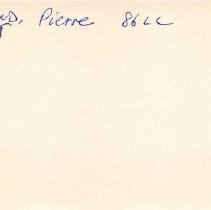 ND, Pierre 86 LC